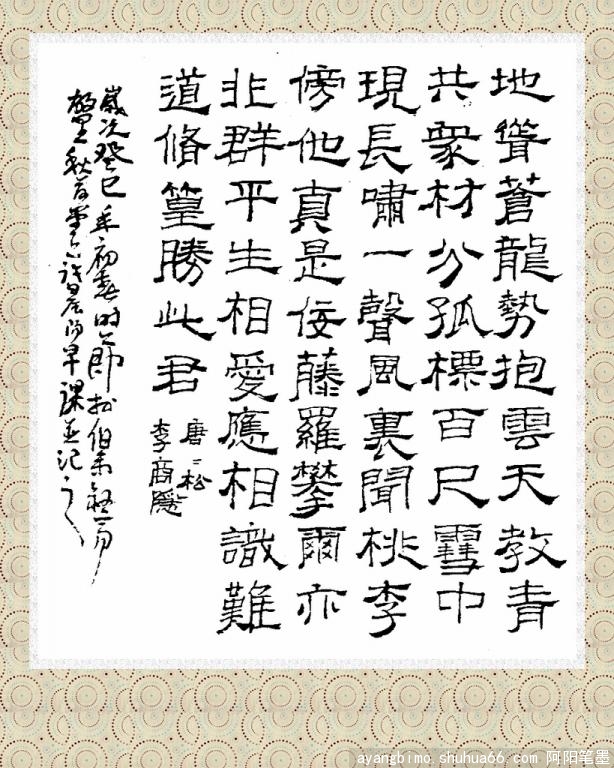 地聳蒼龍勢抱雲天教青
共衆材分孤標百尺雪中
現長嘯一聲風裏聞桃李
傍他真是佞藤羅攀爾亦
非群平生相愛應相識難
道脩篁勝此君
唐 松
李商隱
歲次癸巳年初春時
早課並記之
ayangbimo.shuhua66.com 阿阳笔墨